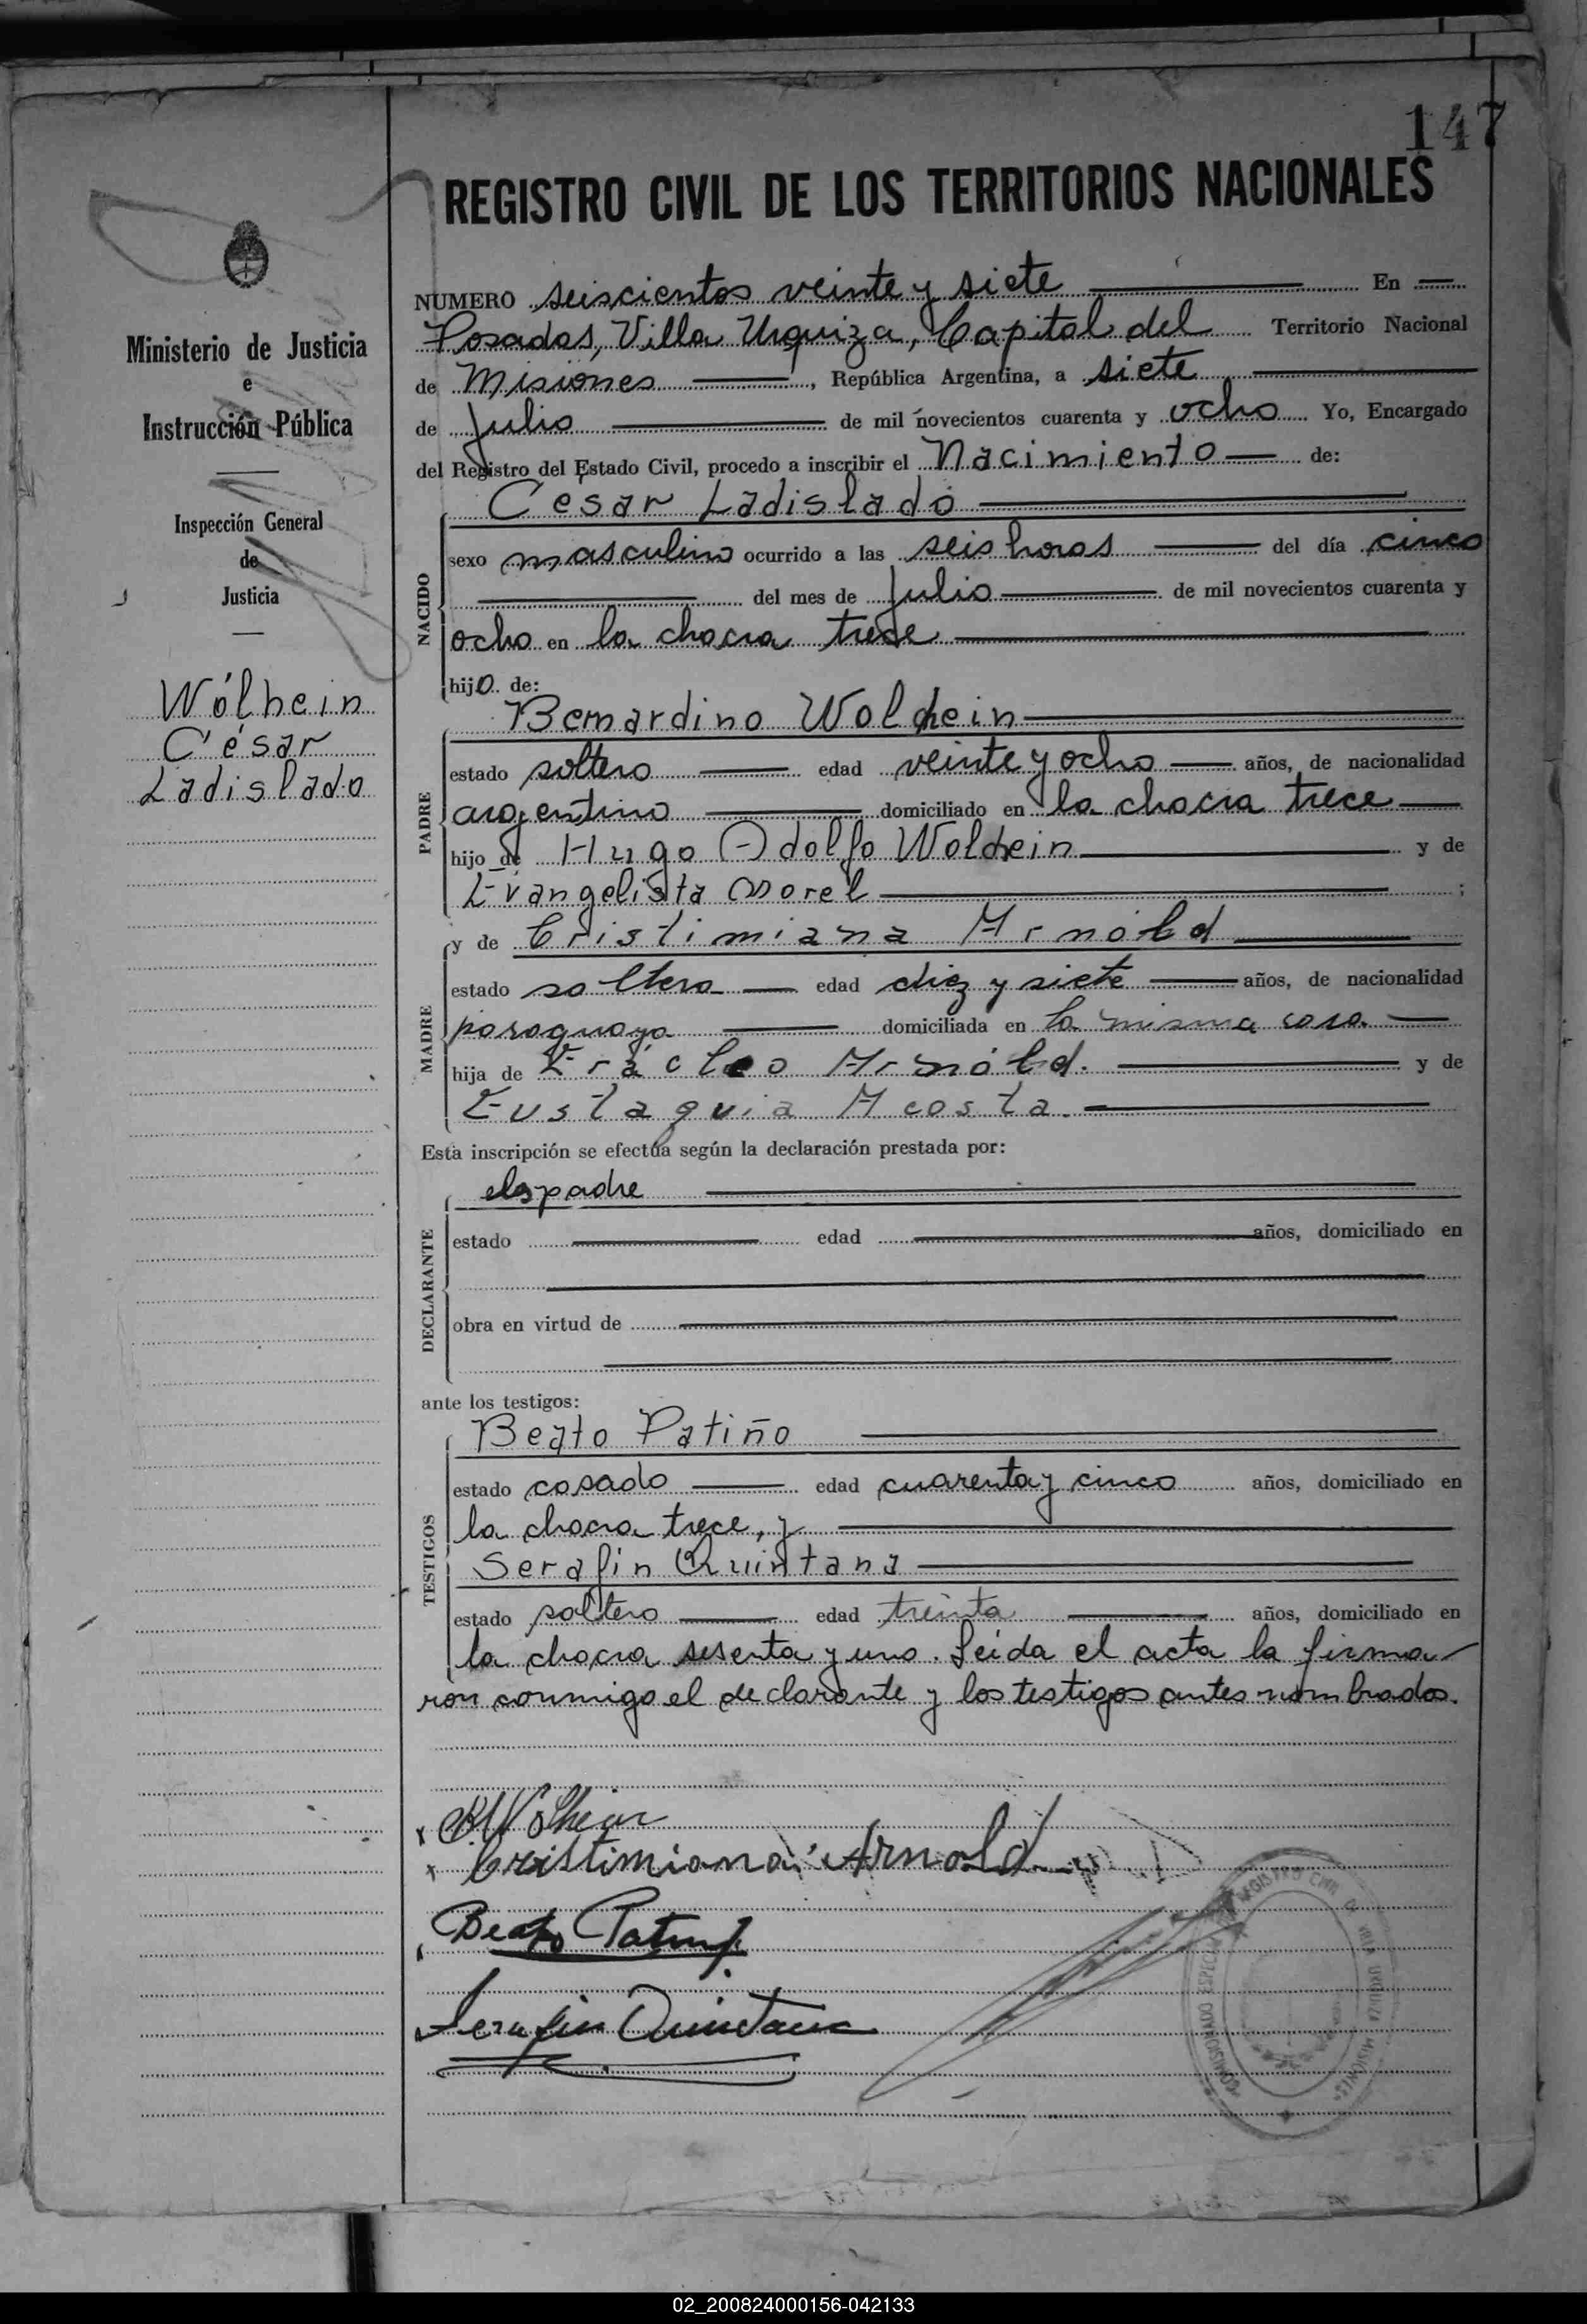 147
REGISTRO CIVIL DE LOS TERRITORIOS NACIONALES
Ministerio de Justicia
e
Instrucción Pública
Inspección General
de
Justicia
Wólhein
César
Ladislado
NUMERO seiscientos veinte y siete En
Posadas, Villa Urquiza, Capital del Territorio Nacional
de Misiones, República Argentina, a siete
de Julio de mil novecientos cuarenta y ocho Yo, Encargado
del Registro del Estado Civil, procedo a inscribir el Nacimiento de:
Cesar Ladislado
NACIDO
sexo masculino ocurrido a las seis horas del día cinco
del mes de Julio de mil novecientos cuarenta y
ocho en la chacra trece
hijo de:
Bernardino Wolhein
PADRE
estado soltero edad veinte y ocho años, de nacionalidad
argentino domiciliado en la chacra trece
hijo de Hugo Adolfo Wolhein y de
Evangelista Morel ;
y de Cristimiana Arnold
MADRE
estado soltera edad diez y siete años, de nacionalidad
paraguaya domiciliada en la misma casa.
hija de Erácleo Arnóld. y de
Eustaquia Acosta.
Esta inscripción se efectúa según la declaración prestada por:
el padre
DECLARANTE
estado edad años, domiciliado en
obra en virtud de
ante los testigos:
Beato Patiño
TESTIGOS
estado casado edad cuarenta y cinco años, domiciliado en
la chacra trece, y
Serafin Quintana
estado soltero edad treinta años, domiciliado en
la chacra sesenta y uno. Leida el acta la firma-
ron conmigo el declarante y los testigos antes nombrados.
B Wolhein
Cristimiana Arnold
Beato Patiño
Serafin Quintana
REGISTRO CIVIL DE VILLA URQUIZA MISIONES
COMISIONADO ESPECIAL
02_200824000156-042133